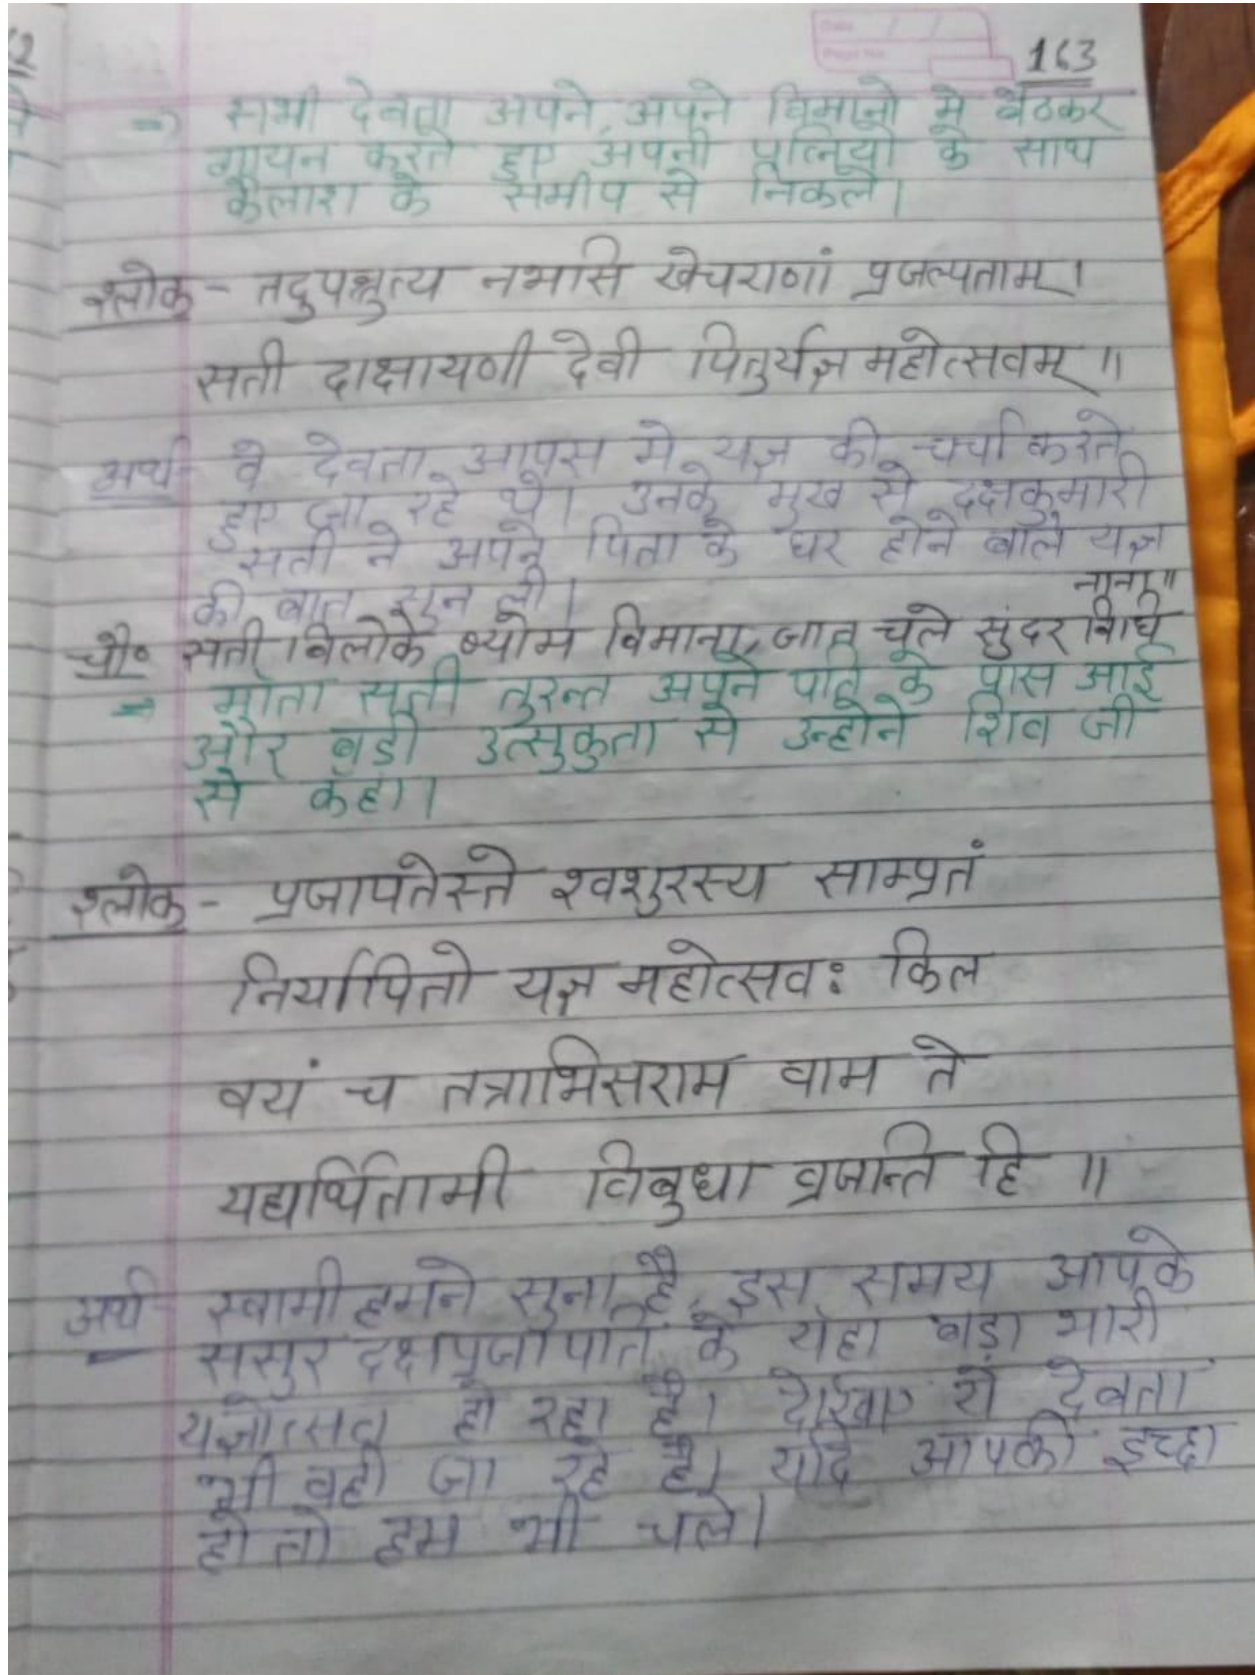 163
⇒ सभी देवता अपने, अपने विमानो मे बैठकर
गायन करते हुए अपनी पत्नियो के साथ
कैलाश के समीप से निकले।
श्लोक - तदुपश्रुत्य नभसि खेचराणां प्रजल्पताम्।
सती दाक्षायणी देवी पितुर्यज्ञ महोत्सवम् ॥
अर्थ- वे देवता आपस मे यज्ञ की चर्चा करते
हुए जा रहे थे। उनके मुख से दक्षकुमारी
सती ने अपने पिता के घर होने वाले यज्ञ
की बात सुन ली।
नाना॥
चौ॰ सती विलोके ब्योम विमाना, जात चले सुंदर विधि
⇒ माता सती तुरन्त अपने पति के पास आई
और बडी उत्सुकुता से उन्होने शिव जी
से कहा।
श्लोक - प्रजापतेस्ते श्वशुरस्य साम्प्रतं
निर्यापितो यज्ञ महोत्सवः किल
वयं च तत्राभिसराम वाम ते
यद्यर्थितामी विबुधा व्रजन्ति हि ॥
अर्थ - स्वामी हमने सुना है, इस समय आपके
ससुर दक्षप्रजापति के यहा बड़ा भारी
यज्ञोत्सव हो रहा है। देखिए ये देवता
भी वही जा रहे है। यदि आपकी इच्छा
हो तो हम भी चले।